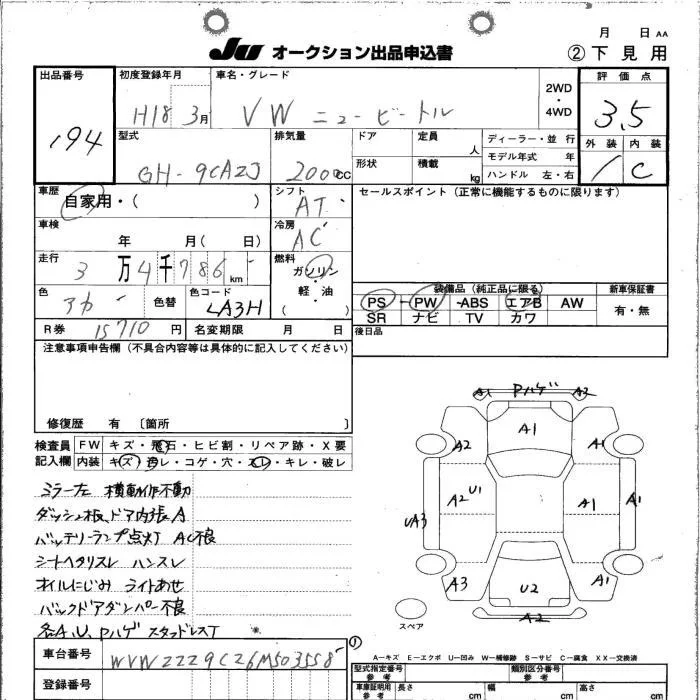 JU オークション出品申込書
月 日 AA
②下見用
出品番号
194
初度登録年月
H18 3月
車名・グレード
VW ニュービートル
2WD
・
4WD
評価点
3.5
外装 内装
1 C
型式
GH-9CAZJ
排気量
2000cc
ドア
形状
定員
人
積載
kg
ディーラー・並行
モデル年式 年
ハンドル 左・右
車歴
自家用・( )
シフト
AT
セールスポイント (正常に機能するものに限ります)
車検
年 月( 日)
冷房
AC
走行
3万4千786km
燃料
ガソリン
・
軽・油
色
アカ
色替
色コード
LA3H
装備品 (純正品に限る)
PS - PW -ABS エアB AW
SR ナビ TV カワ
新車保証書
有・無
R券 15710円
名変期限 月 日
後日品
注意事項申告欄 (不具合内容等は具体的に記入してください)
修復歴 有 〔箇所 〕
検査員
記入欄
FW キズ・飛石・ヒビ割・リペア跡・X要
内装 キズ・汚レ・コゲ・穴・スレ・キレ・破レ
ミラー左 横動作不動
ダッシュ板、ドア内張A
バッテリーランプ点灯 AC不良
シートヘタリスレ ハンスレ
オイルにじみ ライトあせ
バックドアダンパー不良
各A、U、Pハゲ スタッドレスT
A1 Pハゲ A2
A1
A2 A1
A2 U1 A1
UA3 A1
A3 A1
U2
A2
スペア
A-キズ E-エクボ U-凹み W-補修跡 S-サビ C-腐食 XX-交換済
車台番号
WVWZZZ9CZ6M503558
登録番号
型式指定番号
参考
類別区分番号
参考
車庫証明用
参考
長さ cm
幅 cm
高さ cm